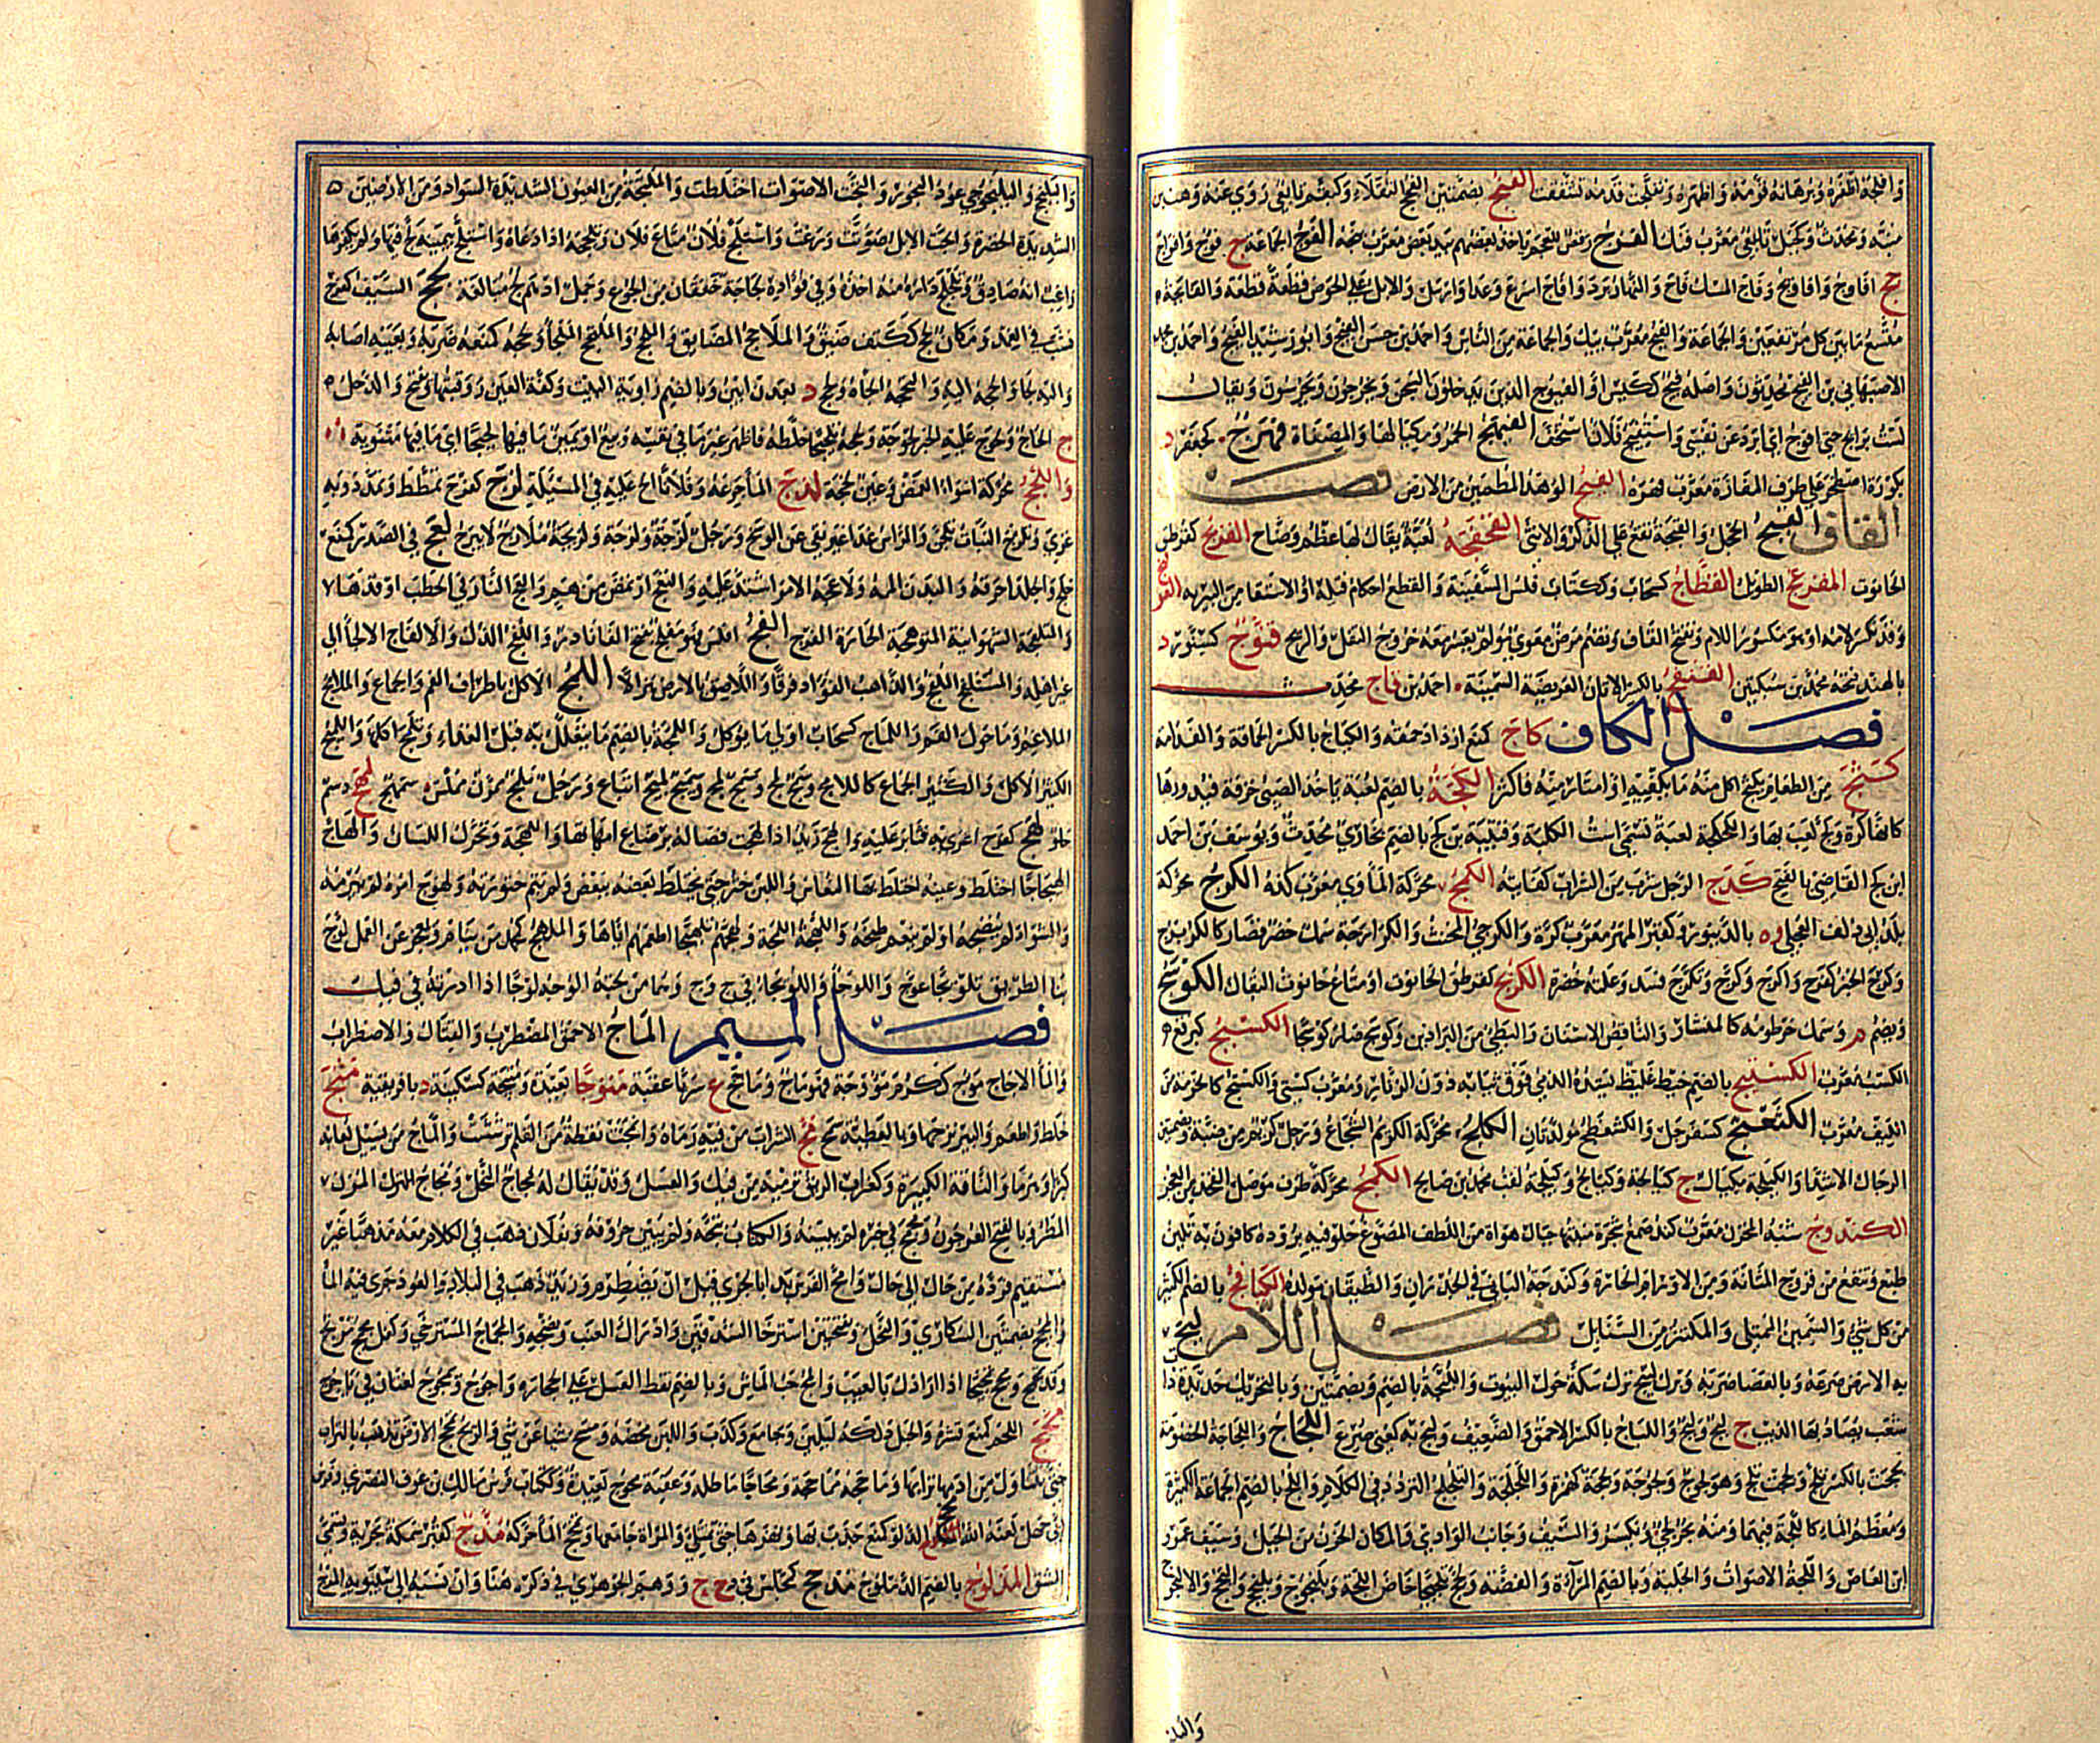 وافلجه اظفره وبرهانه قومه واظهره وتفلجت قدمه تشققت الفنج بضمتين الفج الثقلاء وكبقم تابعي روى عنه وهب بن
منبه ومحدث وكجبل تابعي معرب فنك الفنزج رقص للعجم ياخذ بعضهم بيد بعض معرب پنجه الفوج الجماعة ج فووج وافواج
جج افاوج وافاويج وفاج المسك فاح والنهار برد وافاج اسرع وعدا وارسل الابل على الحوض قطعة قطعة والفائجة
متسع ما بين كل مرتفعين والجماعة والفيج معرب پيك والجماعة من الناس واحمد بن حسن الفيج وابو رشيد الفيج واحمد بن محمد
الاصبهاني بن الفيج محدثون واصله فيج ككيس او الفيوج الذين يدخلون السجن ويخرجون ويحرسون ويقال
لست برائح حتى افوج اي ابرد عن نفسي واستفيج فلان استخف الفيهج الخمر ومكيالها والمصفاة فهرج كجعفر د
بكورة اصطخر على طرف المفازة معرب فهره الفيج الوهد المطمئن من الارض فصل
القاف القبج الحجل والقبجة تقع على الذكر والانثى القجقجة لعبة يقال لها عظم وضاح القربج كقرطق
الحانوت المقرعج الطويل القطاج كسحاب وككتاب قلس السفينة والقطع احكام فتله او الاستقا من البير به القولنج
وقد تكسر لامه او هو مكسور اللام وتفتح القاف وتضم مرض معوي مولم يعسر معه خروج الثفل والريح قنوج كسنور د
بالهند فتحه محمود بن سبكتكين القنفج بالكسر الاتان العريضة السمينة احمد بن قاج محدث
فصل الكاف كاج كمنع ازداد حمقه والكياج بالكسر الحماقة والفدامة
كثج من الطعام يكثج اكل منه ما يكفيه او امتار منه فاكثر الكجة بالضم لعبة ياخذ الصبي خرقة فيدورها
كانها كرة وكج لعب بها والكجكجة لعبة تسمى است الكلبة وقتيبة بن كج بالضم بخاري محدث ويوسف بن احمد
ابن كج القاضي بالفتح كدج الرجل شرب من الشراب كفايته الكذج محركة الماوى معرب كده الكرج محركة
بلد ابي دلف العجلي وه بالدينور وكقبر المهر معرب كره والكرجي المخنث والكرارجة سمك خضر قصار كالكريرج
وكرج الخبز كفرح واكرج وكرج وتكرج فسد وعلته خضرة الكربج كقرطق الحانوت او متاع حانوت البقال الكوسج
ويضم م وسمك خرطومه كالمنشار والناقص الاسنان والبطي من البراذين وكوسج صار كوسجا الكسبج كبرقع
الكسب معرب الكستيج بالضم خيط غليظ يشده الذمي فوق ثيابه دون الزنار ومعرب كستي والكستج كالحزمة من
الليف معرب الكسعج كسفرجل والكشعظج مولدتان الكلج محركة الكريم الشجاع ورجل كريم من ضبة وبضمتين
الرجال الاشدا والكيلجة مكيال ج كيالجة وكيالج وكيلجة لقب محمد بن صالح الكمج محركة طرف موصل الفخذ من العجز
الكندوج شبه المخزن معرب كندو صمغ شجرة منبتها جبال هراة من اللطف المصبوغ حلو فيه برودة كافورية تلين
طبع وتنفع من قروح المثانة ومن الاورام الحارة وكندجة الباني في الجدران والطيقان مولدة الكنافج بالضم الكثير
من كل شي والسمين الممتلي والمكتنز من السنابل فصل اللام لبج
به الارض صرعه وبالعصا ضربه وبرك لبيج برك سكة حول البيوت واللبجة بالضم وبضمتين وبالتحريك حديدة ذا
شعب يصاد بها الذيب ج لبج ولبج واللباج بالكسر الاحمق والضعيف ولبج به كعني صرع اللجاج واللجاجة الخصومة
لججت بالكسر تلج ولججت تلج وهو لجوج ولجوجة ولججة كهمزة واللجلجة والتلجلج التردد في الكلام واللج بالضم الجماعة الكثيرة
ومعظم الماء كاللجة فيهما ومنه بحر لجي ويكسر والسيف وجانب الوادي والمكان الحزن من الجبل وسيف عمرو
ابن العاص واللجة الاصوات والجلبة وبالضم المرآة والفضة ولجج تلجيجا خاض اللجة ويلنجوج ويلنجج والنجج والالنجوج
والبلنج واليلنجوجي عود البخور والتجت الاصوات اختلطت والملتجة من العيون الشديدة السواد ومن الارضين
الشديدة الخضرة والجت الابل صوتت ورغت واستلج فلان متاع فلان وتلججه اذا ادعاه واستلج بيمينه لج فيها ولم يكفرها
زاعما انه صادق وتلجلج داره منه اخذه وفي فؤاده لجاجة خفقان من الجوع وجمل ادهم لج مبالغة لحج السيف كفرح
نشب في الغمد ومكان لحج ككتف ضيق والملاحج المضايق واللحج والملتحج الملجأ ولحجه كمنعه ضربه وبعينه اصابه
واليه لجا والحجه اليه والتحجه الجأه ولحج د بعدن ابين وبالضم زاوية البيت وكفة العين ووقبتها ويفتح والدحل
ج الحاج ولحوج عليه الخبر لحوجة ولحجه تلحيجا خلطه فاظهر غير ما في نفسه وبيع او يمين ما فيها لحيجا اي ما فيها مثنوية
واللخج محركة اسوا الغمص وعين لخجة لذج الما جرعه وفلانا الح عليه في المسئلة لزج كفرح تمطط وتمدد وبه
غري وتلزج النبات تلجن والراس غدا غير نقي عن الوسخ ورجل لزجة ولزجة ولزيجة ملازم لا يبرح لعج في الصدر كمنع
خلج والجلد احرقه والبدن المه ولاعجه الامر اشتد عليه والتعج ارتمض من هم والعج النار في الحطب اوقدها
والمتلعجة الشهوانية المتوهجة الحارة الفرج الفج افلس فهو ملفج بفتح الفا نادر واللفج الذل والالفاج الالجأ الى
غير اهله والمستلفج الملفج والذاهب الفؤاد فرقا واللاصق بالارض هزالا اللمج الاكل باطراف الفم والجماع والملامج
الملاغم وما حول الفم واللماج كسحاب ادنى ما يوكل واللمجة بالضم ما يتعلل به قبل الغداء وتلمج اكلها واللميج
الكثير الاكل والكثير الجماع كاللامج وسمج لمج وسمج لمج وسميج لميج اتباع ورجل تلمج ممرن مملس سمهج لمهج دسم
حلو لهج كفرح اغري به فثابر عليه والهج زيد اذا لهجت فصاله برضاع امهاتها واللهجة وتحرك اللسان والهاج
الهيجاجا اختلط وعينه اختلط بها النعاس واللبن خثر حتى يختلط بعضه ببعض ولم يتم خثورته ولهوج امره لم يبرمه
والشواء لم ينضجه او لم ينعم طبخه واللهجة اللمجة ولهجهم تلهيجا اطعمهم اياها والملهج كمحسن من ينام ويعجز عن العمل لوج
بنا الطريق تلويجا عوج واللوجا واللويجا في ح و ج وهما من لجته الوجه لوجا اذا ادرته في فيك
فصل الميم الماج الاحمق المضطرب والقتال والاضطراب
والما الاجاج موج ككرم مؤوجة فهو ماج وماجج ع سرنا عقبة متوجا بعيدة ومتيجة كسكينة د بافريقية مثج
خلط واطعم والبير نزحها وبالعطية سمح مج الشراب من فيه رماه وانمجت نقطة من القلم ترششت والماج من يسيل لعابه
كبرا وهرما والناقة الكبيرة وكغراب الريق ترميه من فيك والعسل وقد يقال له مجاج النحل ومجاج المزن
المطر وبالفتح العرجون ومجمج في خبره لم يبينه والكتاب ثبجه ولم يبين حروفه وبفلان ذهب في الكلام معه مذهبا غير
مستقيم فرده من حال الى حال وامج الفرس بدا بالجري قبل ان يضطرم وزيد ذهب في البلاد والعود جرى فيه الما
والمجج بضمتين السكارى والنحل وبفتحتين استرخا الشدقين وادراك العنب ونضجه والمجماج المسترخي وكفل مجمج مرتج
وقد مجمج ومجج تمجيجا اذا ارادك بالعيب والمج حب الماش وبالضم نقط العسل على الحجارة واجوج ومجوج لغتان في ياجوج
محج اللحم كمنع قشره والحبل دلكه ليلين وجامع وكذب واللبن مخضه ومسح شيئا عن شي والريح تمحج الارض تذهب بالتراب
حتى تتناول من ادمتها ترابها وماحجه مماحجة ومحاجا ماطله وعقبة محوج بعيدة وككتاب فرس مالك بن عوف النصري وفرس
ابي جهل لعنه الله مخج الدلو كمنع جذب بها ونهزها حتى تمتلي والمرأة جامعها وتمخج الما حركه مدج كقبر سمكة بحرية وتسمى
المشق المدلوج بالضم الدملوج مذحج كمجلس في ذ ح ج ووهم الجوهري في ذكره هنا وان نسبه الى سيبويه المرج
والبلنج